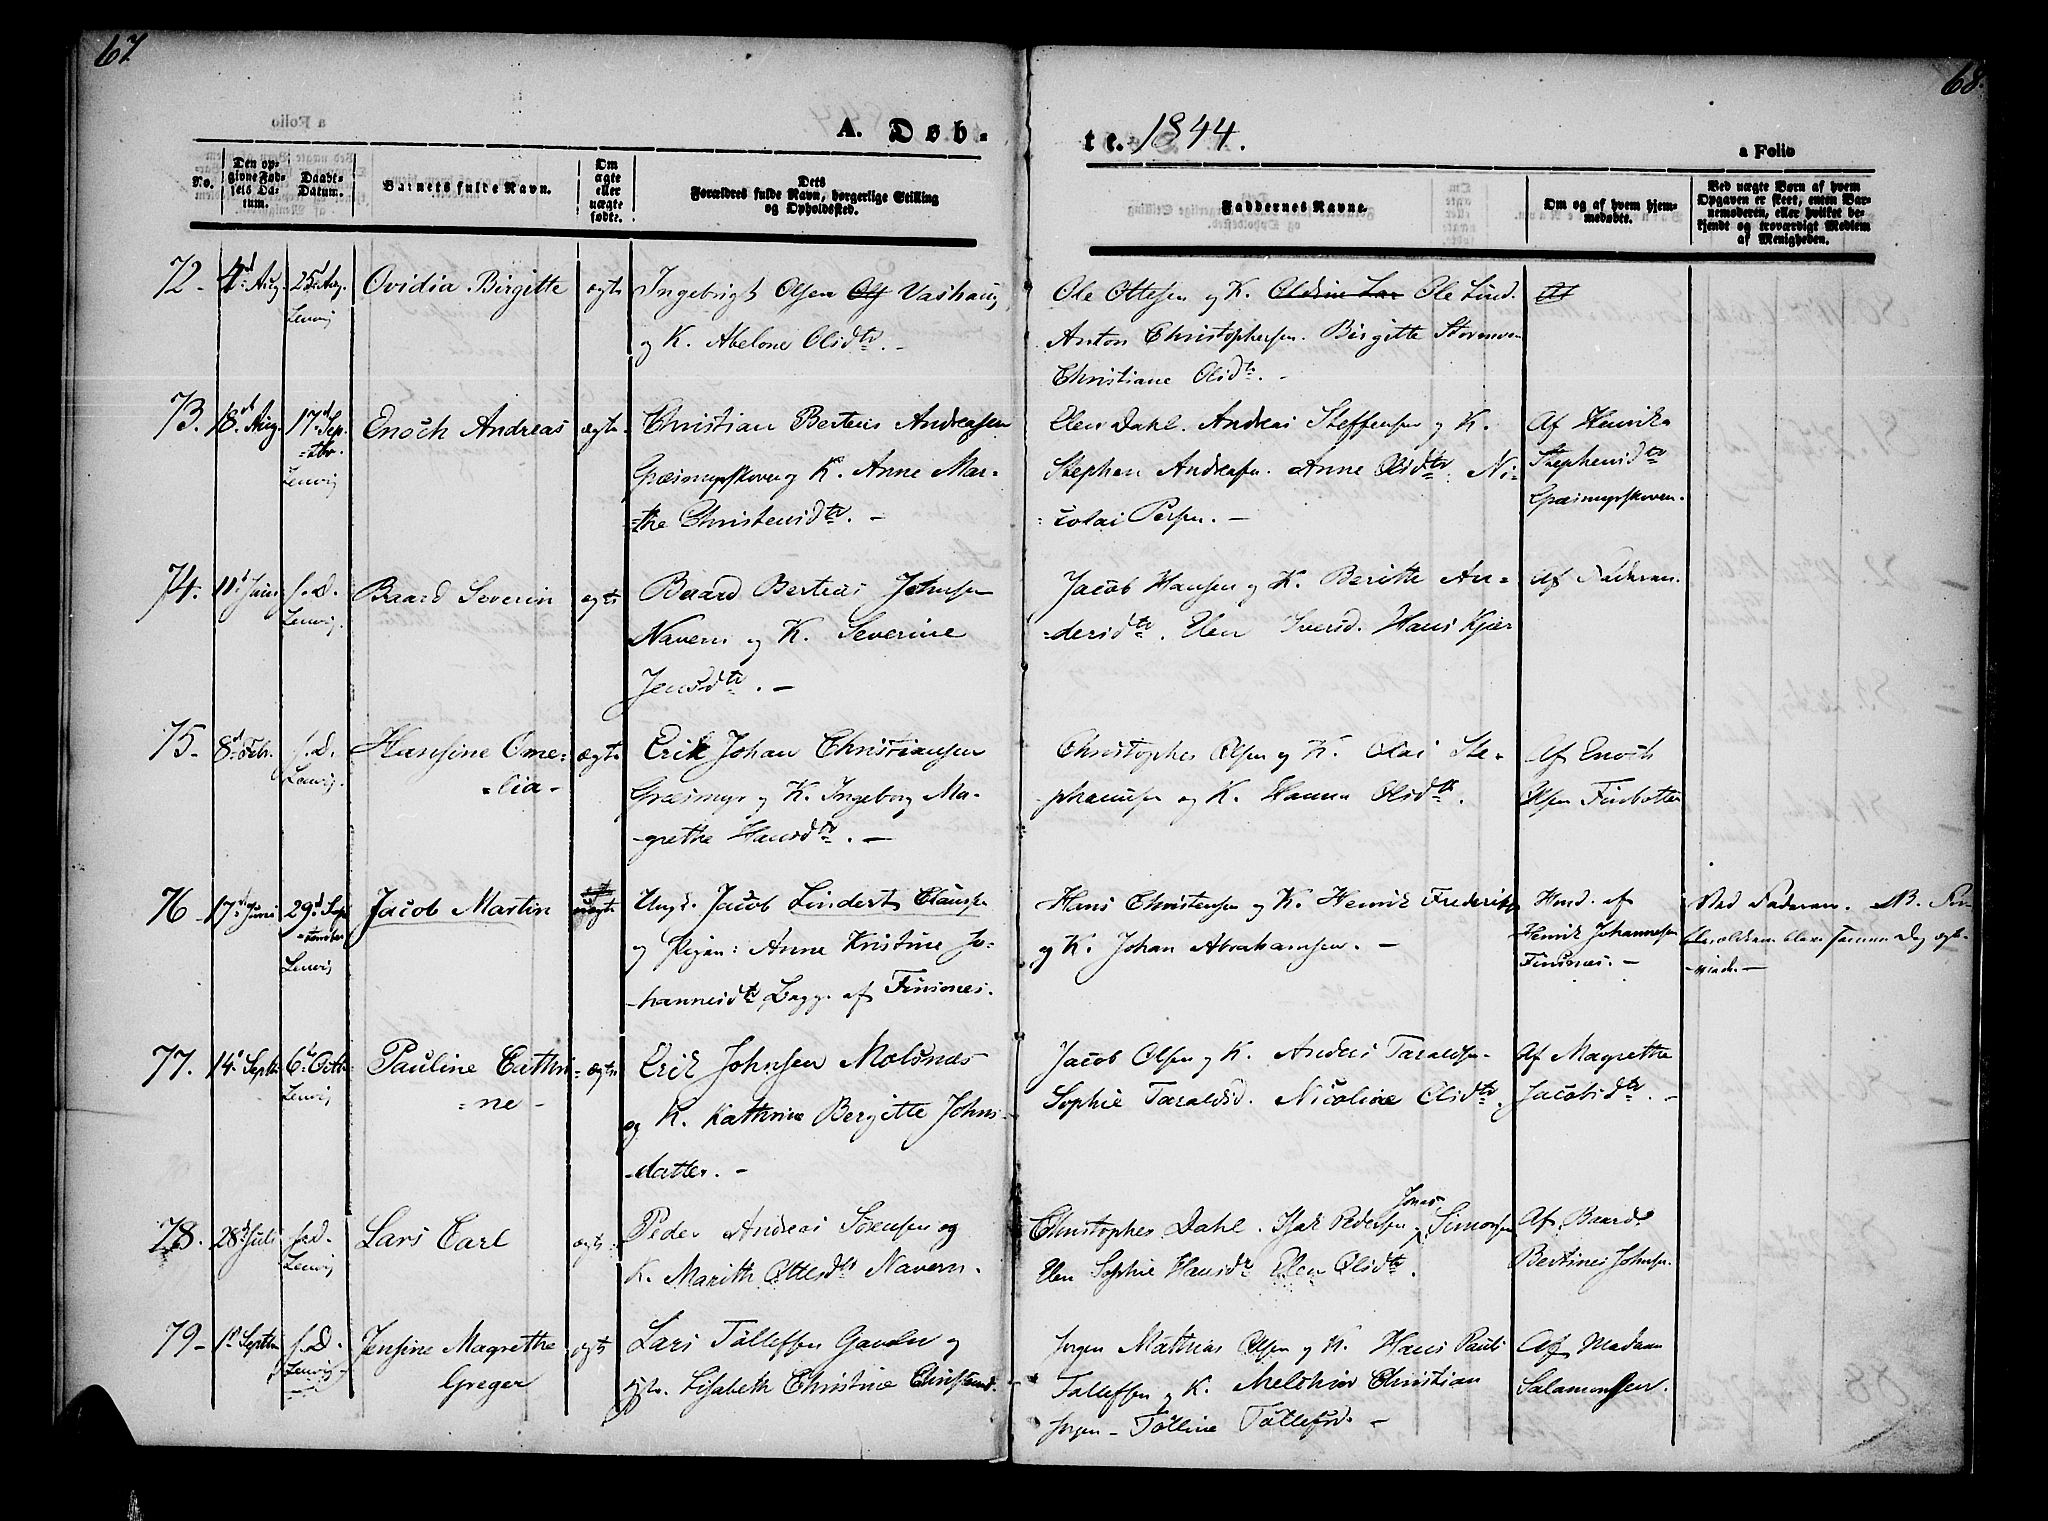 67
68.
A. Døb-
te. 1844.
a Folio
No.
Den op-
givne Fød-
sels Da-
tum.
Daabs-
Datum.
Barnets fulde Navn.
Om
ægte
eller
uægte
fødte.
Dets
Forældres fulde Navn, borgerlige Stilling
og Opholdssted.
Faddernes Navne.
Om og af hvem hjem-
medøbte.
Ved uægte Børn af hvem
Opgaven er skeet, enten Bar-
nemoderen, eller hvilket be-
kjendt og troværdigt Medlem
af Menigheden.
72- 4d Aug. 25d Aug. Ovidia Birgitte ægte Ingebrigt Olsen Vashaug
Lenvig
og K. Abelone Olsdtr. -
Ole Ottesen og K. Ole Lind.
Anton Christophersen. Birgitte
Christiane Olsdtr. -
73. 18d Aug. 17d Sep- Enoch Andreas ægte Christian Berteus Andreasen
=tbr.
Lenvig
Græsmyrskoven og K. Anne Mar-
=the Christensdtr. -
Elen Dahl. Andreas Steffensen og K.
Stephen Andreasen. Anne Olsdtr. Ni-
=colai Persen. -
Af Henrika
Stephensdtr
Græsmyrskoven.
74. 11d Juni s. D. Baard Severin ægte Baard Berteus Johnsen
Lenvig.
Navern og K. Severine
Jensdtr. -
Jacob Hansen og K. Beritte An-
=dersdtr. Elen Iversd. Hans Kjær
Af Faderen.
75- 8d Febr. s. D. Hansine Ome- ægte Erik Johan Christiansen
Lenvig. =lia-
Græsmyr og K. Ingeborg Ma-
-grethe Hansdtr. -
Christopher Olsen og K. Olai Ste-
phansen og K. Hanna Olsdtr.
Af Enoch
Olsen Finbotten
76- 17d Juni 29d Sep- Jacob Martin uægte Ungk. Jacob Lindert Clausen
=tember
Lenvig
og Pigen: Anne Kristine Jo-
hannesdtr Begge af Finsnes.
Hans Christensen og K. Henrik Frederiks
og K. Johan Abrahamsen. -
Hmd. af
Henrik Johannesen
Finsnes. -
Ved Faderen. NB. For
ældrene bleve samme Dag ægte-
viede. -
77. 14d Septbr 6d Octbr Pauline Cathri- ægte Erik Johnsen Molsnæs
Lenvig =ne-
og K. Kathrine Bergitte Johns-
-datter. -
Jacob Olsen og K. Anders Taraldsen-
Sophie Taraldsd. Nicoline Olsdtr.
Af Magrethe
Jacobsdtr. -
78. 28d Juli s. D. Lars Carl ægte Peder Andreas Sørensen og
Lenvig
K. Marith Ottesdtr Navern.
Christopher Dahl. Isak Pedersen Jonas Simonsen
Elen Sophie Hansdtr Elen Olsdtr.
Af Baard
Bertines Johnsen.
79- 1d Septbr s. D. Jensine Magrethe ægte Lars Tøllefsen og
Lenvig. Greger
Lisabeth Christine
Jørgen Mathias Olsen og K. Hans Pauli
Tøllefsen og K. Melchior Christian
Jørgen- Tølline Tøllefsd. -
Af Madam
Salamonsen.